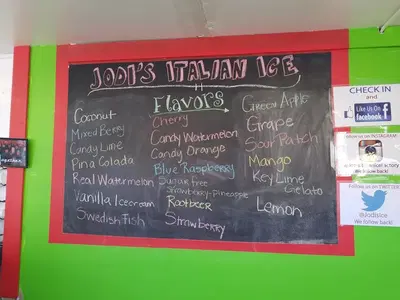 JODI'S ITALIAN ICE
Flavors
Coconut
Mixed Berry
Candy Lime
Pina Colada
Real Watermelon
Vanilla Icecream
Swedish fish
Cherry
Candy Watermelon
Candy Orange
Blue Raspberry
Sugar free
Strawberry-pineapple
Rootbeer
Strawberry
Green Apple
Grape
Sour Patch
Mango
Key Lime
Gelato
Lemon
CHECK IN
and
Like Us On
facebook
FOLLOW US ON INSTAGRAM
We follow back!
Follow us on TWITTER
@JodisIce
We follow back!